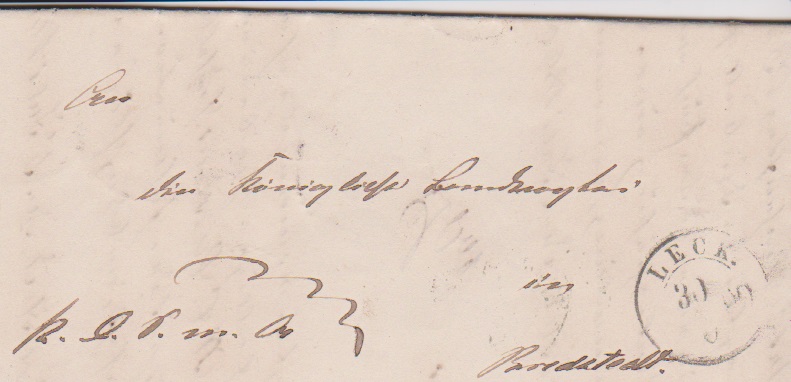 An
die Königliche Landvogtei
in
Bredstedt.
K. D. S. m. A
LECK.
30